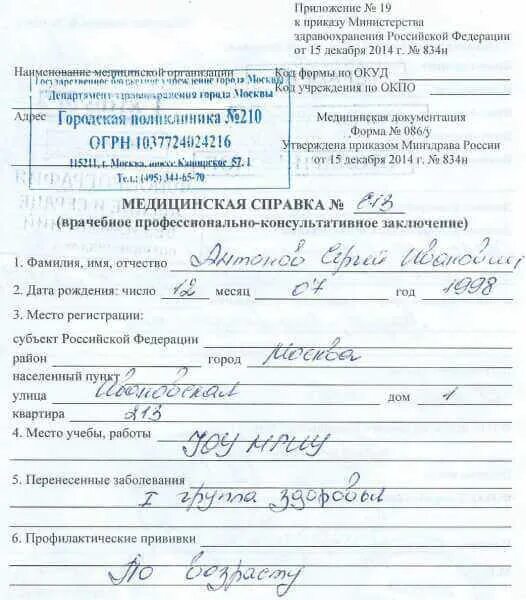 Приложение № 19
к приказу Министерства
здравоохранения Российской Федерации
от 15 декабря 2014 г. № 834н
Наименование медицинской организации
Код формы по ОКУД
Код учреждения по ОКПО
Государственное бюджетное учреждение города Москвы
Департамент здравоохранения города Москвы
Адрес
Городская поликлиника №210
ОГРН 1037724024216
115211, г. Москва, Каширское 57, 1
Тел.: (495) 344-65-70
Медицинская документация
Форма № 086/у
Утверждена приказом Минздрава России
от 15 декабря 2014 г. № 834н
МЕДИЦИНСКАЯ СПРАВКА № 613
(врачебное профессионально-консультативное заключение)
1. Фамилия, имя, отчество Антонов Сергей Иванович
2. Дата рождения: число 12 месяц 07 год 1998
3. Место регистрации:
субъект Российской Федерации
район город Москва
населенный пункт
улица Ивановская дом 1
квартира 213
4. Место учебы, работы
5. Перенесенные заболевания
I группа здоровья
6. Профилактические прививки
По возрасту